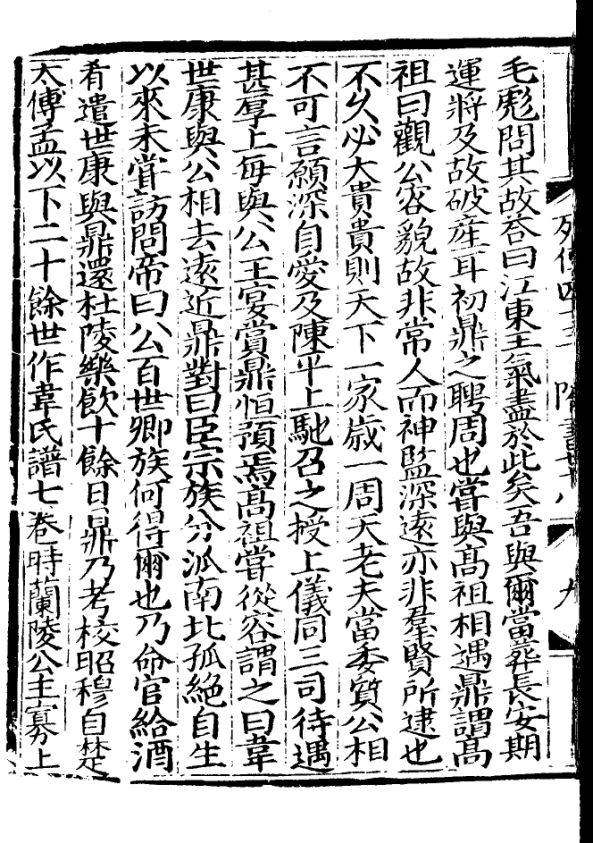 列傳四十三　隋書七十八　九
毛彪問其故荅曰江東王氣盡於此矣吾與爾當葬長安期
運將及故破産耳初鼎之聘周也嘗與髙祖相遇鼎謂髙
祖曰觀公容貌故非常人而神監深遠亦非羣賢所逮也
不久必大貴貴則天下一家歳一周天老夫當委質公相
不可言願深自愛及陳平上馳召之授上儀同三司待遇
甚厚上每與公王宴賞鼎恒預焉髙祖嘗從容謂之曰韋
世康與公相去遠近鼎對曰臣宗族分派南北孤絶自生
以來未嘗訪問帝曰公百世卿族何得爾也乃命官給酒
肴遣世康與鼎還杜陵樂飲十餘日鼎乃考校昭穆自楚
太傅孟以下二十餘世作韋氏譜七卷時蘭陵公主寡上